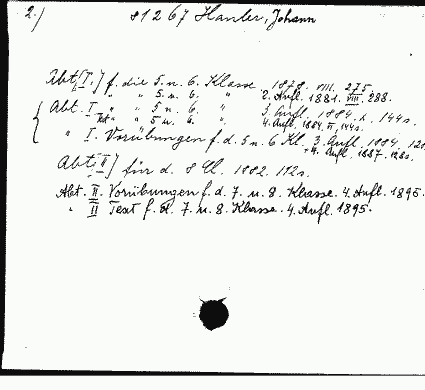 2.) 81267 Hauler, Johann
Abt. [I.] f. die 5. u. 6. Klasse 1878. VIII. 275.
" " 5. u. 6. " 2. Aufl. 1881. VIII. 288.
Abt. I " " 5 u. 6. " 3. Aufl. 1884. 144 s.
Text " " 5 u. 6. " 4. Aufl. 1884. II, 144 s.
" I. Vorübungen f. d. 5 u. 6 Kl. 3. Aufl. 1884. 128
+ 4. Aufl. 1887. 128 s.
Abt. [II] für d. 8 Cl. 1882. 112 s.
Abt. II. Vorübungen f. d. 7. u. 8. Klasse. 4. Aufl. 1895.
" II Text f. d. 7. u. 8. Klasse. 4. Aufl. 1895.